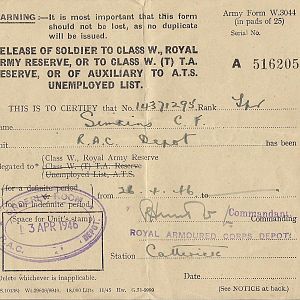 WARNING:—It is most important that this form
should not be lost, as no duplicate
will be issued.
Army Form W.3044
(in pads of 25)
Serial No.
RELEASE OF SOLDIER TO CLASS W., ROYAL
ARMY RESERVE, OR TO CLASS W. (T) T.A.
RESERVE, OR OF AUXILIARY TO A.T.S.
UNEMPLOYED LIST.
A 516205
THIS IS TO CERTIFY that No. 10371295 Rank Tpr
Simkins C. F.
R.A.C Depot
Class W., Royal Army Reserve
Class W. (T) T.A. Reserve
Unemployed List, A.T.S.
for a definite period
for an indefinite period
(Space for Unit's stamp)
13 APR 1946
R.A.C. DEPOT
Commandant,
ROYAL ARMOURED CORPS DEPOT
Station Catterick
Delete whichever is inapplicable.
(See NOTICE at back.)